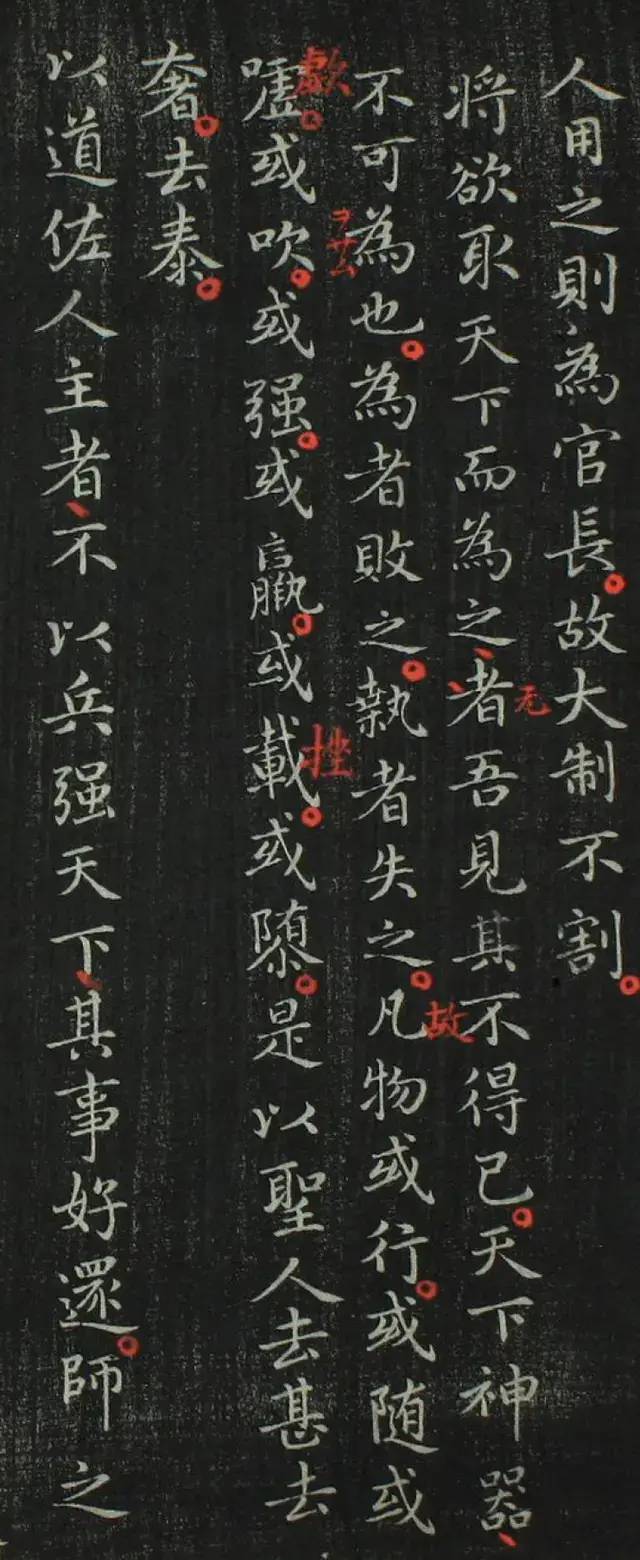 人用之則為官長。故大制不割。
将欲取天下而為之、者吾見其不得已。天下神器、
无
不可為也。為者敗之。執者失之。凡物或行。或随或
故
嘘。或吹。或强。或羸。或載。或隳。是以聖人去甚去
歔
ヲサム
挫
奢。去泰。
以道佐人主者、不以兵强天下、其事好還。師之